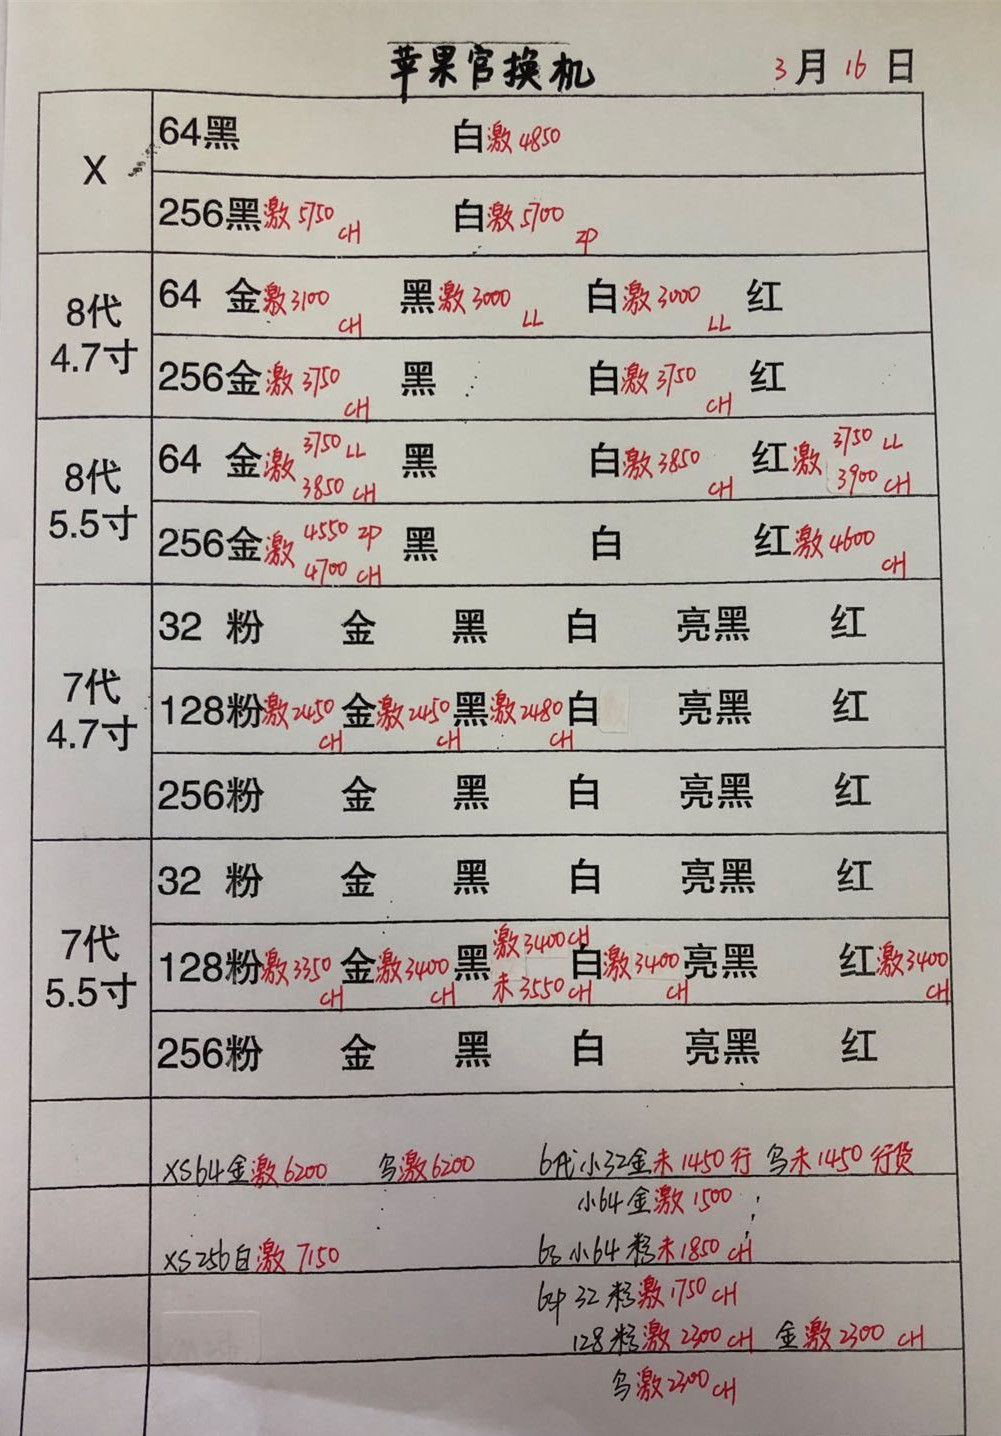 苹果官换机 3月16日
X
64黑 白激4850
256黑激5750 CH 白激5700 ZP
8代
4.7寸
64 金激3100 CH 黑激3000 LL 白激3000 LL 红
256金激3750 CH 黑 白激3750 CH 红
8代
5.5寸
64 金激3750 LL 3850 CH 黑 白激3850 CH 红激3750 LL 3900 CH
256金激4550 ZP 4700 CH 黑 白 红激4600 CH
7代
4.7寸
32 粉 金 黑 白 亮黑 红
128粉激2450 CH 金激2450 CH 黑激2480 CH 白 亮黑 红
256粉 金 黑 白 亮黑 红
7代
5.5寸
32 粉 金 黑 白 亮黑 红
128粉激3350 CH 金激3400 CH 黑激3400 CH 未3550 CH 白激3400 CH 亮黑 红激3400 CH
256粉 金 黑 白 亮黑 红
XS64金激6200 乌激6200 6代小32金未1450行 乌未1450行货
小64金激1500
XS256白激7150 6S小64粉未1850 CH
6SP 32粉激1750 CH
128粉激2300 CH 金激2300 CH
乌激2300 CH